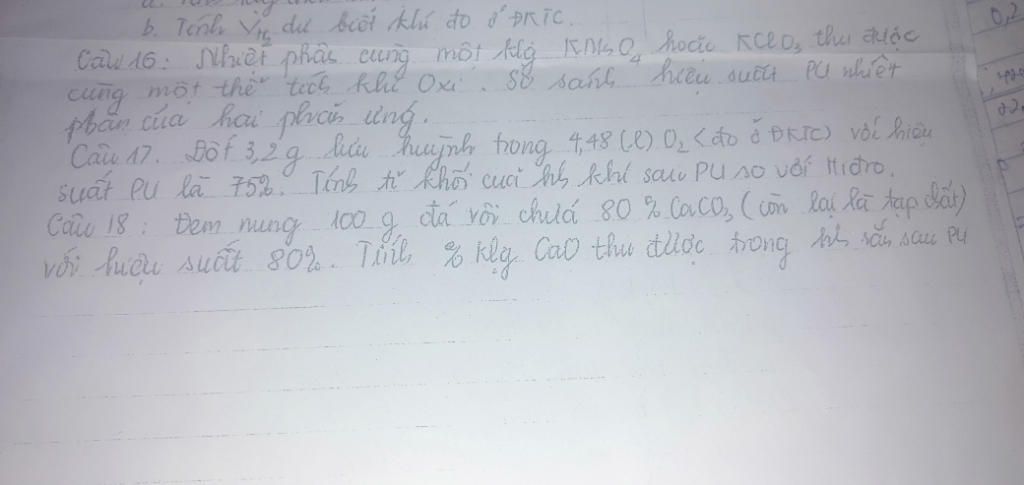 b. Tính V H2 dư biết khí đo ở ĐKTC.
Câu 16: Nhiệt phân cùng một klg KMnO4 hoặc KClO3 thu được
cùng một thể tích khí Oxi. So sánh hiệu suất PU nhiệt
phân của hai phản ứng.
Câu 17. Đốt 3,2g lưu huỳnh trong 4,48 (l) O2 (đo ở ĐKTC) với hiệu
suất PU là 75%. Tính tỉ khối của hh khí sau PU so với Hiđro.
Câu 18: Đem nung 100 g đá vôi chứa 80 % CaCO3 (còn lại là tạp chất)
với hiệu suất 80%. Tính % klg CaO thu được trong hh rắn sau PU
0,2